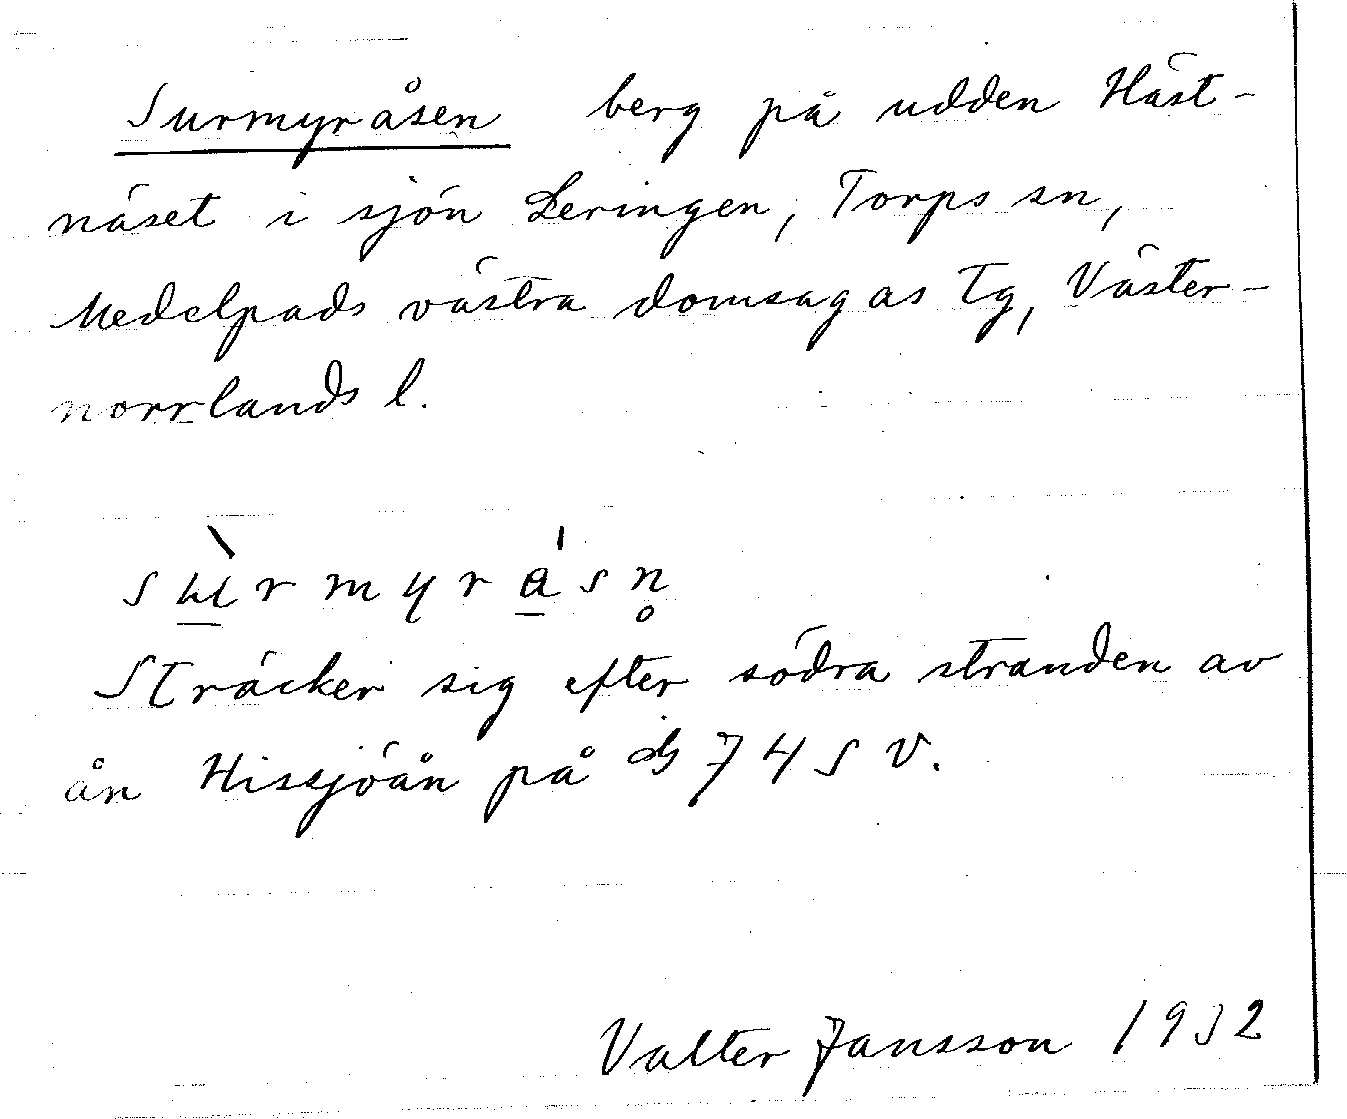 Surmyråsen berg på udden Häst-
näset i sjön Leringen, Torps sn,
Medelpads västra domsagas Tg, Väster-
norrlands l.
sùrmyrásn̥
Sträcker sig efter södra stranden av
ån Hissjöån på 74 SV.
Valter Jansson 1932